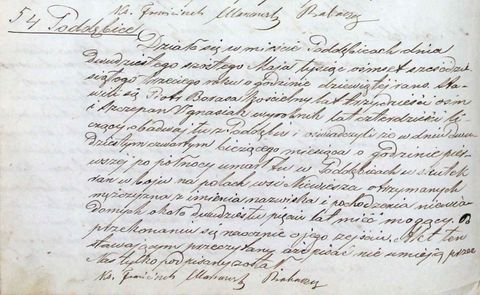 54 Poddębice
Działo się w mieście Poddębicach dnia
dwudziestego szóstego Maja tysiąc ośmset sześćdzie
siątego trzeciego roku o godzinie dziewiątej rano. Sta
wili się Piotr Kościelny lat trzydzieści ośm
i Szczepan Ignasiak wyrobnik lat czterdzieści li
czący obadwaj tu z Poddębic i oświadczyli że w dniu dwu
dziestym czwartym bieżącego miesiąca o godzinie pier
wszej po północy umarł tu w Poddębicach w skutek
ran w boju na polach wsi Niewiesza otrzymanych
mężczyzna z imienia nazwiska i pochodzenia niewia
domych około dwudziestu pięciu lat mieć mogący. Po
przekonaniu się naocznie o jego zejściu, Akt ten
stawającym przeczytany, iż pisać nie umieją przez
Nas tylko podpisany został.